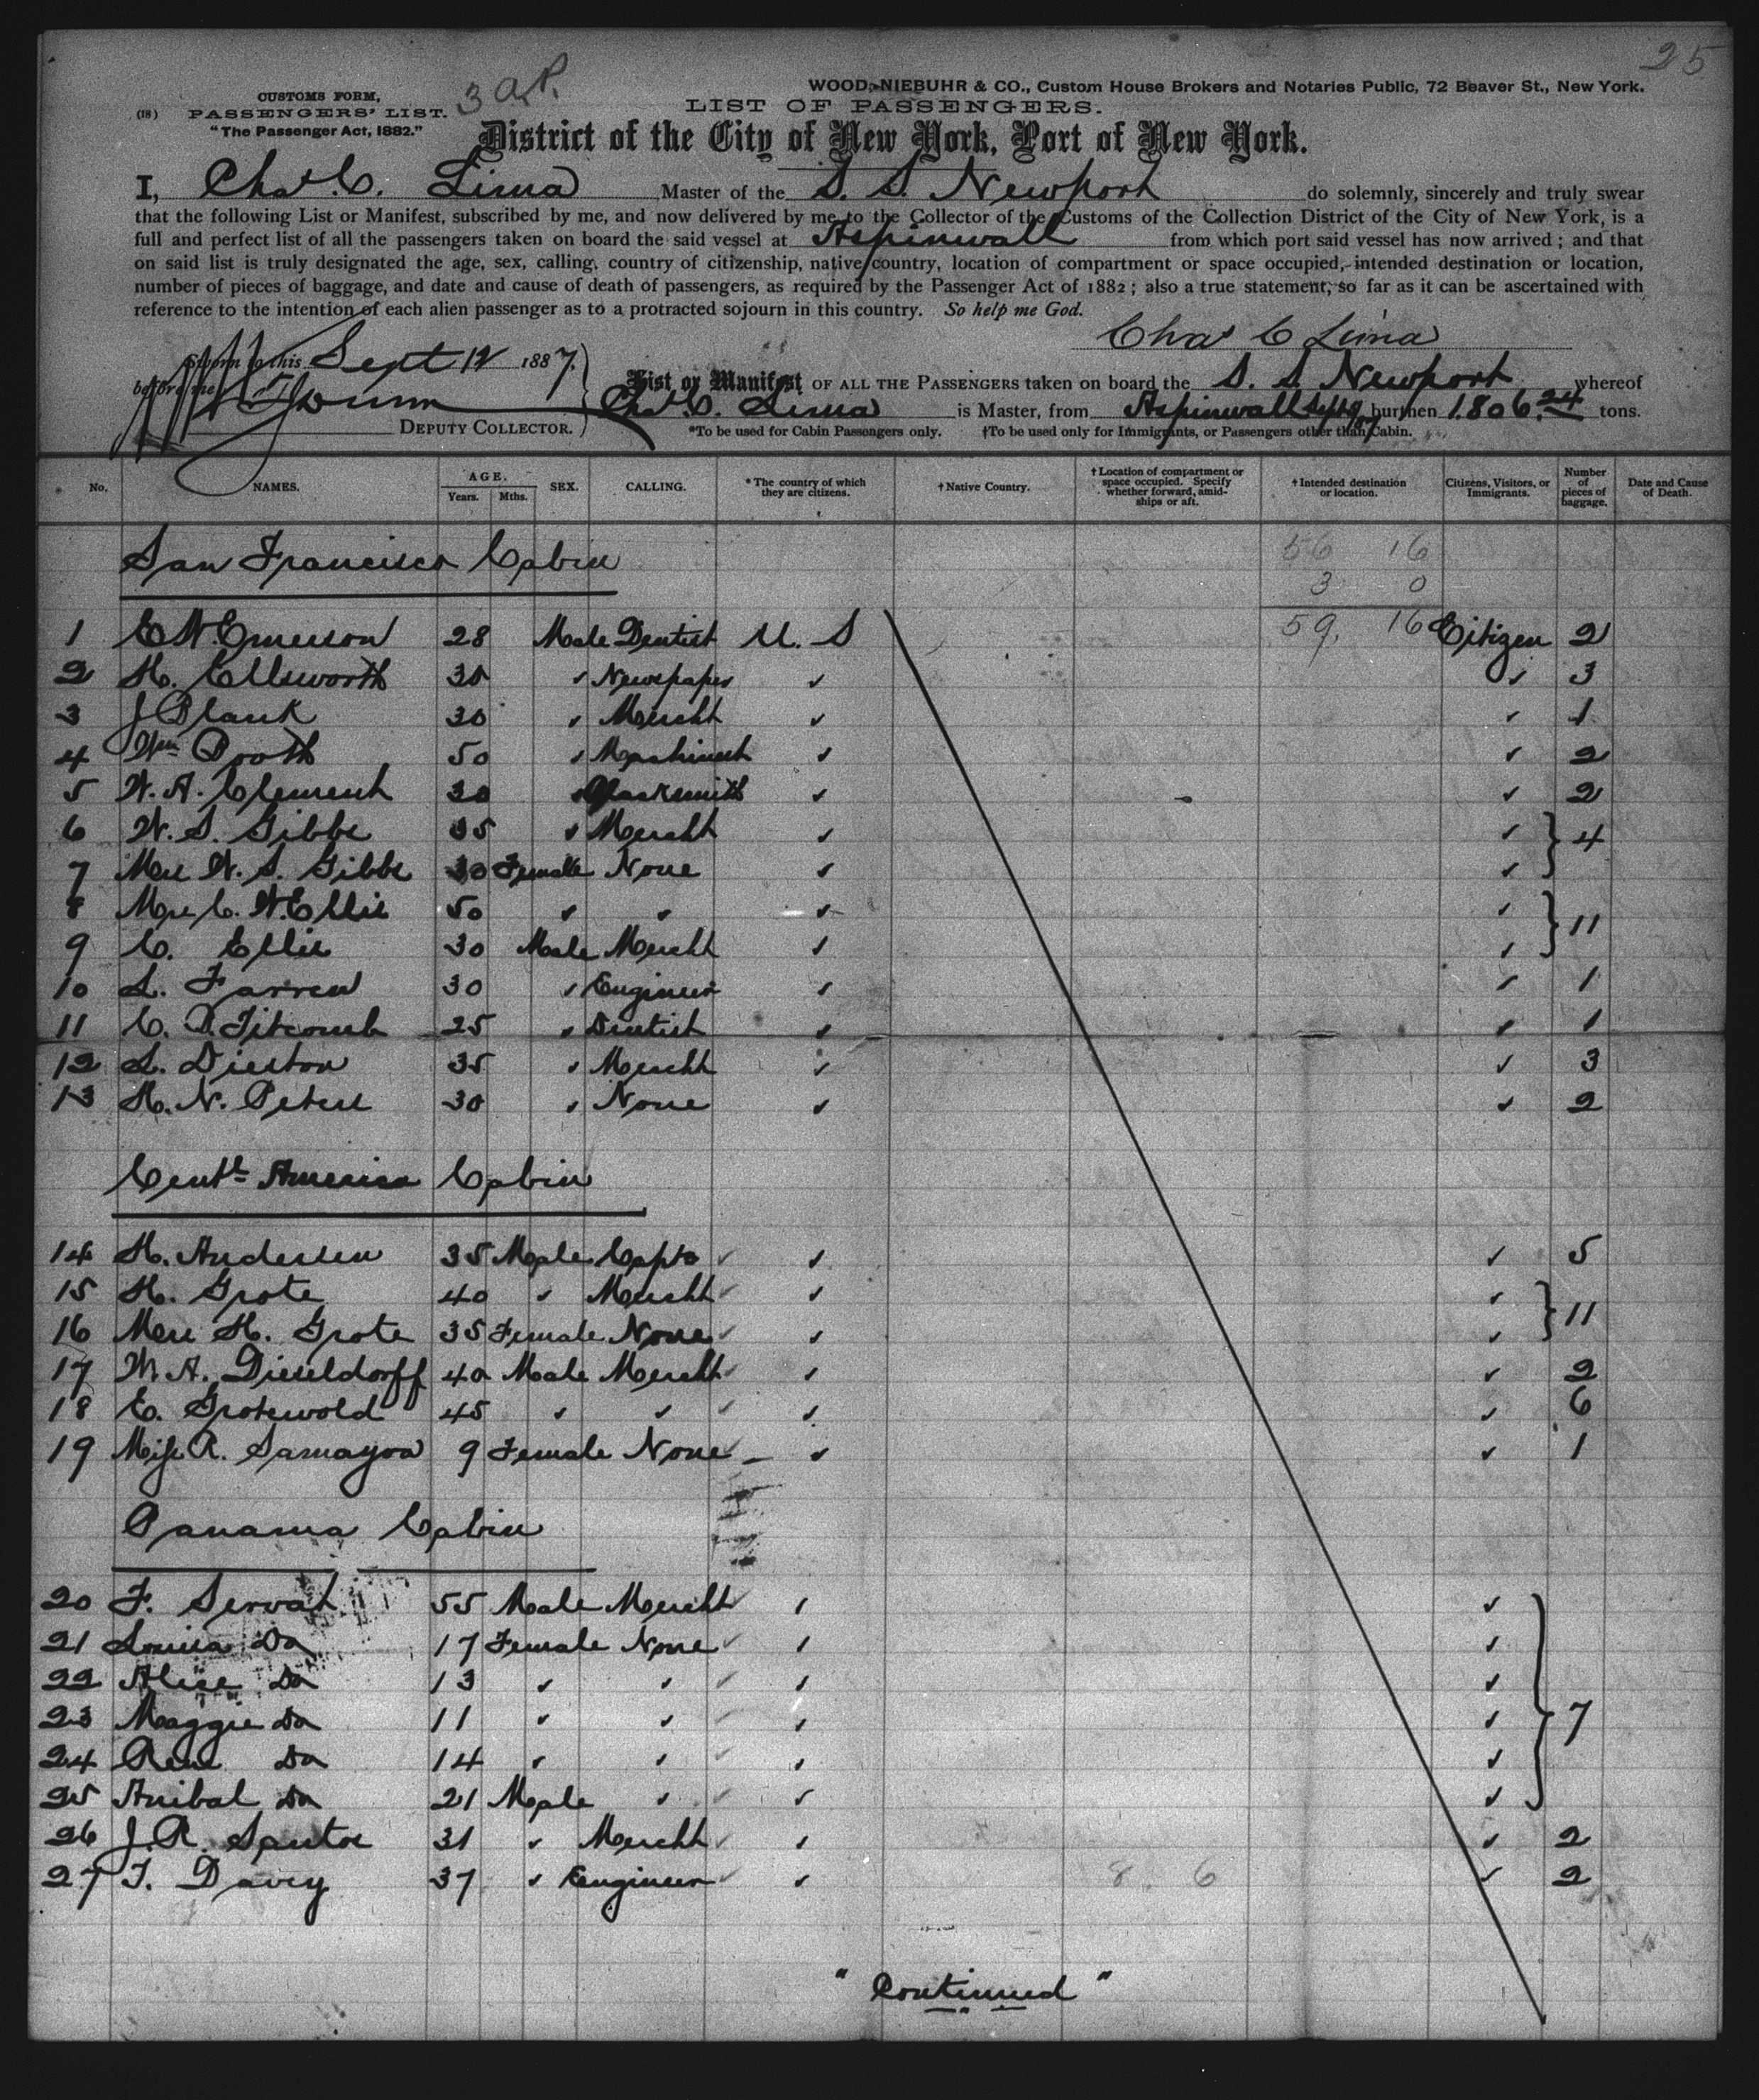 25
3 a.P.
WOOD, NIEBUHR & CO., Custom House Brokers and Notaries Public, 72 Beaver St., New York.
CUSTOMS FORM,
(18) PASSENGERS' LIST.
"The Passenger Act, 1882."
LIST OF PASSENGERS.
District of the City of New York, Port of New York.
I, Chas C. Lima Master of the S. S. Newport do solemnly, sincerely and truly swear
that the following List or Manifest, subscribed by me, and now delivered by me to the Collector of the Customs of the Collection District of the City of New York, is a
full and perfect list of all the passengers taken on board the said vessel at Aspinwall from which port said vessel has now arrived ; and that
on said list is truly designated the age, sex, calling, country of citizenship, native country, location of compartment or space occupied, intended destination or location,
number of pieces of baggage, and date and cause of death of passengers, as required by the Passenger Act of 1882 ; also a true statement, so far as it can be ascertained with
reference to the intention of each alien passenger as to a protracted sojourn in this country. So help me God.
Chas C Lima
Sworn to this Sept 12 1887.
before me
DEPUTY COLLECTOR.
List or Manifest OF ALL THE PASSENGERS taken on board the S. S. Newport whereof
Chas C. Lima is Master, from Aspinwall Sept burthen 1.806.24 tons.
*To be used for Cabin Passengers only. †To be used only for Immigrants, or Passengers other than Cabin.
No. NAMES. AGE. Years. Mths. SEX. CALLING. *The country of which they are citizens. †Native Country. †Location of compartment or space occupied. Specify whether forward, amidships or aft. †Intended destination or location. Citizens, Visitors, or Immigrants. Number of pieces of baggage. Date and Cause of Death.
San Francisco Cabin
56 16
3 0
59. 16
1 E W Emerson 28 Male Dentist U. S Citizen 2
2 H. Ellsworth 30 ✓ Newspaper ✓ ✓ 3
3 J Plank 30 ✓ Mercht ✓ ✓ 1
4 Wm Booth 50 ✓ Machinist ✓ ✓ 2
5 W. A. Clement 30 ✓ Blacksmith ✓ ✓ 2
6 W. S. Gibbs 35 ✓ Mercht ✓ ✓ 4
7 Mrs W. S. Gibbs 30 Female None ✓ ✓
8 Mrs C. W. Ellis 50 ✓ ✓ ✓ ✓ 11
9 C. Ellis 30 Male Mercht ✓ ✓
10 L. Farren 30 ✓ Engineer ✓ ✓ 1
11 C. P. Titcomb 25 ✓ Dentist ✓ ✓ 1
12 L. 35 ✓ Mercht ✓ ✓ 3
13 H. N. Peters 30 ✓ None ✓ ✓ 2
Centl America Cabin
14 H. Andersen 35 Male Capt ✓ ✓ ✓ 5
15 H. Grote 40 ✓ Mercht ✓ ✓ ✓ 11
16 Mrs H. Grote 35 Female None ✓ ✓ ✓
17 W. A. Dieseldorff 40 Male Mercht ✓ ✓ ✓ 2
18 E. Grotewold 45 ✓ ✓ ✓ ✓ ✓ 6
19 Miss R. Samayoa 9 Female None ✓ ✓ ✓ 1
Panama Cabin
20 F. Servat 55 Male Mercht ✓ ✓ ✓ 7
21 Louisa Do 17 Female None ✓ ✓ ✓
22 Alice Do 13 ✓ ✓ ✓ ✓ ✓
23 Maggie Do 11 ✓ ✓ ✓ ✓
24 Do 14 ✓ ✓ ✓ ✓ ✓
25 Anibal Do 21 Male ✓ ✓ ✓ ✓
26 J. R. Santos 31 ✓ Mercht ✓ ✓ ✓ 2
27 T. Davey 37 ✓ Engineer ✓ ✓ ✓ 2
8 6
"Continued"